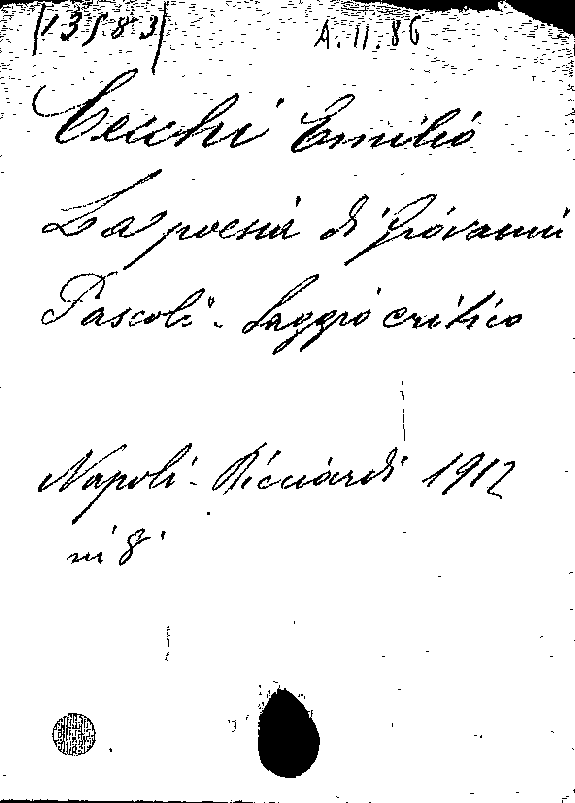 (13583) A.11.86
Cecchi Emilio
La poesia di Giovanni
Pascoli - Saggio critico
Napoli - Ricciardi 1912
in 8°